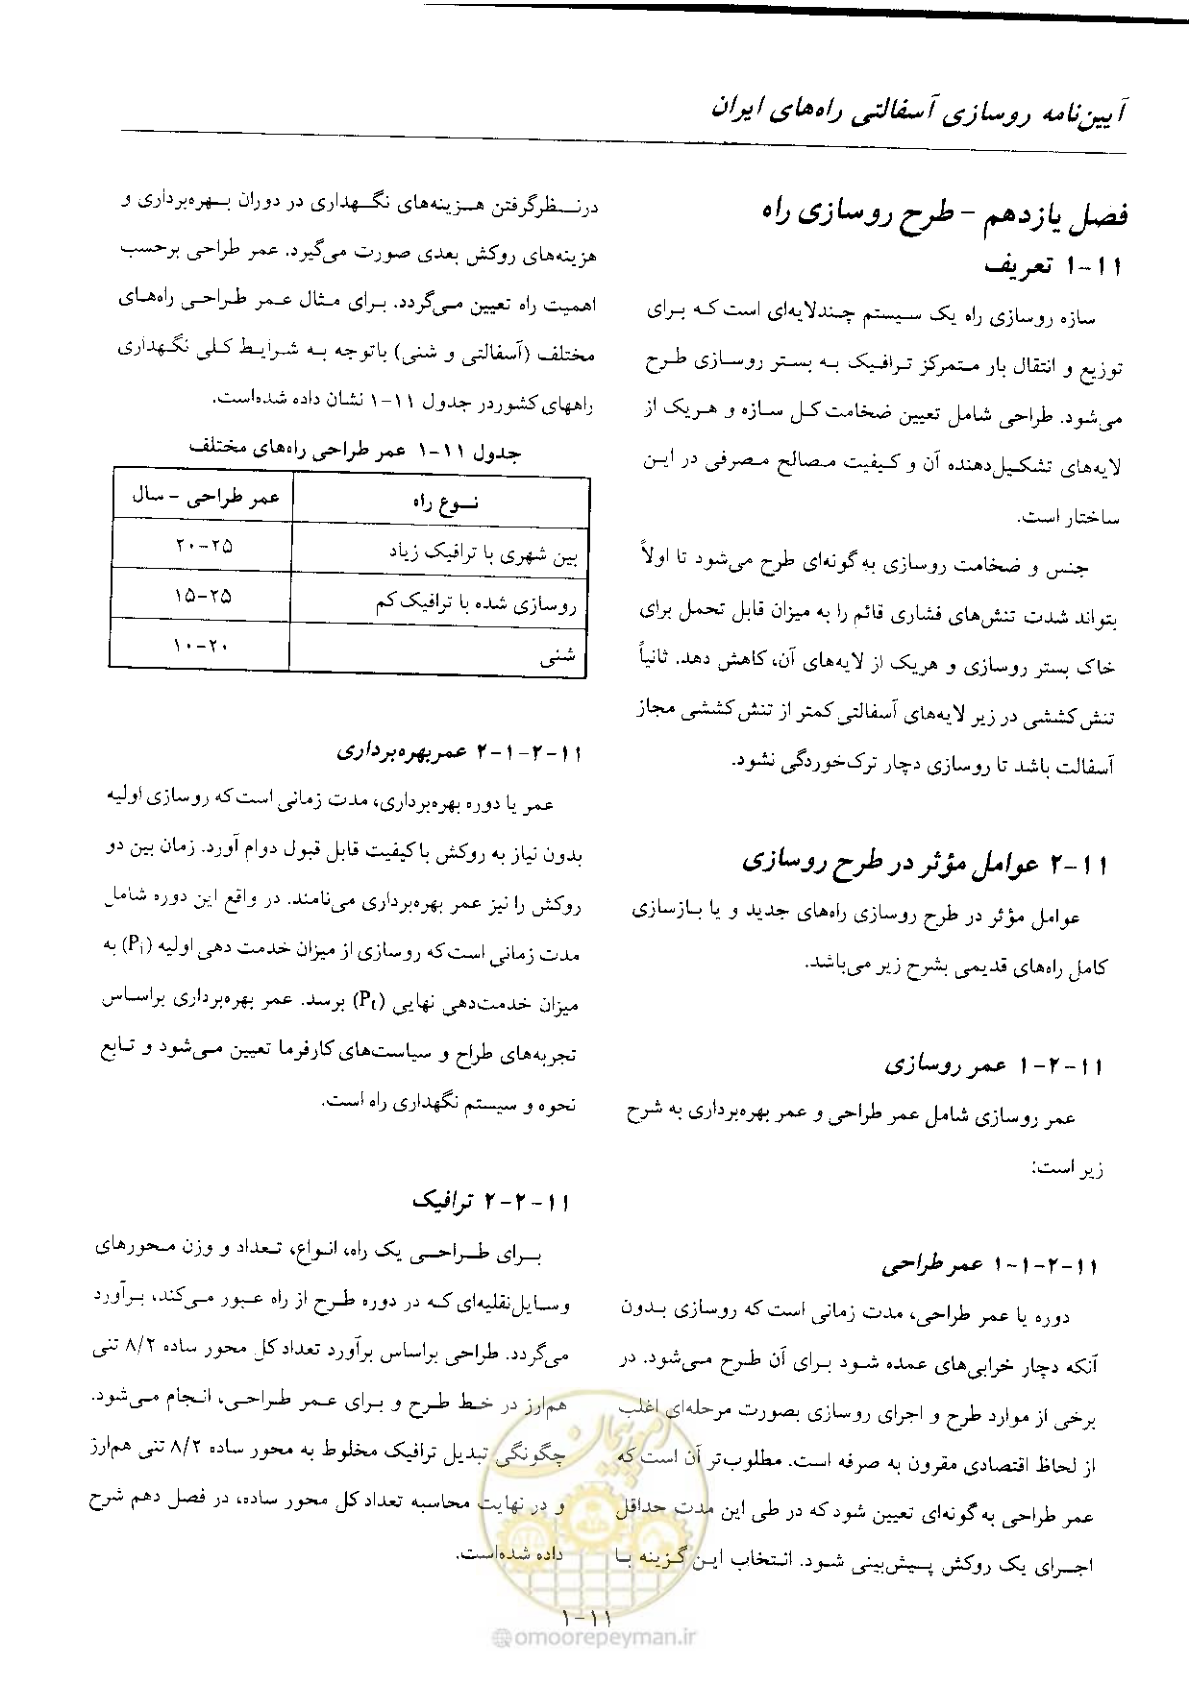 آیین‌نامه روسازی آسفالتی راه‌های ایران
فصل یازدهم - طرح روسازی راه
۱۱-۱ تعریف
سازه روسازی راه یک سیستم چندلایه‌ای است که برای
توزیع و انتقال بار متمرکز ترافیک به بستر روسازی طرح
می‌شود. طراحی شامل تعیین ضخامت کل سازه و هریک از
لایه‌های تشکیل‌دهنده آن و کیفیت مصالح مصرفی در این
ساختار است.
جنس و ضخامت روسازی به‌گونه‌ای طرح می‌شود تا اولاً
بتواند شدت تنش‌های فشاری قائم را به میزان قابل تحمل برای
خاک بستر روسازی و هریک از لایه‌های آن، کاهش دهد. ثانیاً
تنش کششی در زیر لایه‌های آسفالتی کمتر از تنش کششی مجاز
آسفالت باشد تا روسازی دچار ترک‌خوردگی نشود.
۱۱-۲ عوامل مؤثر در طرح روسازی
عوامل مؤثر در طرح روسازی راه‌های جدید و یا بازسازی
کامل راه‌های قدیمی بشرح زیر می‌باشد.
۱۱-۲-۱ عمر روسازی
عمر روسازی شامل عمر طراحی و عمر بهره‌برداری به شرح
زیر است:
۱۱-۲-۱-۱ عمر طراحی
دوره یا عمر طراحی، مدت زمانی است که روسازی بدون
آنکه دچار خرابی‌های عمده شود برای آن طرح می‌شود. در
برخی از موارد طرح و اجرای روسازی بصورت مرحله‌ای اغلب
از لحاظ اقتصادی مقرون به صرفه است. مطلوب‌تر آن است که
عمر طراحی به‌گونه‌ای تعیین شود که در طی این مدت حداقل
اجرای یک روکش پیش‌بینی شود. انتخاب این گزینه با
درنظرگرفتن هزینه‌های نگهداری در دوران بهره‌برداری و
هزینه‌های روکش بعدی صورت می‌گیرد. عمر طراحی برحسب
اهمیت راه تعیین می‌گردد. برای مثال عمر طراحی راه‌های
مختلف (آسفالتی و شنی) باتوجه به شرایط کلی نگهداری
راههای کشوردر جدول ۱۱-۱ نشان داده شده‌است.
جدول ۱۱-۱ عمر طراحی راه‌های مختلف
نوع راه	عمر طراحی - سال
بین شهری با ترافیک زیاد	۲۰-۲۵
روسازی شده با ترافیک کم	۱۵-۲۵
شنی	۱۰-۲۰
۱۱-۲-۱-۲ عمربهره‌برداری
عمر یا دوره بهره‌برداری، مدت زمانی است‌که روسازی اولیه
بدون نیاز به روکش باکیفیت قابل قبول دوام آورد. زمان بین دو
روکش را نیز عمر بهره‌برداری می‌نامند. در واقع این دوره شامل
مدت زمانی است‌که روسازی از میزان خدمت دهی اولیه (Pi) به
میزان خدمت‌دهی نهایی (Pt) برسد. عمر بهره‌برداری براساس
تجربه‌های طراح و سیاست‌های کارفرما تعیین می‌شود و تابع
نحوه و سیستم نگهداری راه است.
۱۱-۲-۲ ترافیک
برای طراحی یک راه، انواع، تعداد و وزن محورهای
وسایل‌نقلیه‌ای که در دوره طرح از راه عبور می‌کند، برآورد
می‌گردد. طراحی براساس برآورد تعداد کل محور ساده ۸/۲ تنی
هم‌ارز در خط طرح و برای عمر طراحی، انجام می‌شود.
چگونگی تبدیل ترافیک مخلوط به محور ساده ۸/۲ تنی هم‌ارز
و در نهایت محاسبه تعداد کل محور ساده، در فصل دهم شرح
داده شده‌است.
امورپیمان
۱۱-۱
@omoorepeyman.ir